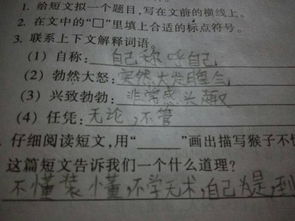 1. 给短文拟一个题目,写在文前的横线上。
2. 在文中的“□”里填上合适的标点符号。
3. 联系上下文解释词语。
(1) 自称: 自己称呼自己
(2) 勃然大怒: 突然大发脾气
(3) 兴致勃勃: 非常感兴趣
(4) 任凭: 无论,不管
仔细阅读短文,用“ ”画出描写猴子不懂
这篇短文告诉我们一个什么道理?
不懂装懂,不学无术,自己为是,到